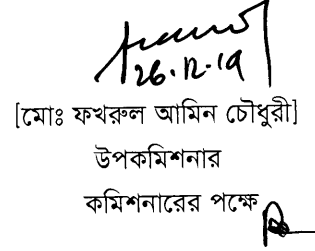 26.12.19
[মোঃ ফখরুল আমিন চৌধুরী]
উপকমিশনার
কমিশনারের পক্ষে